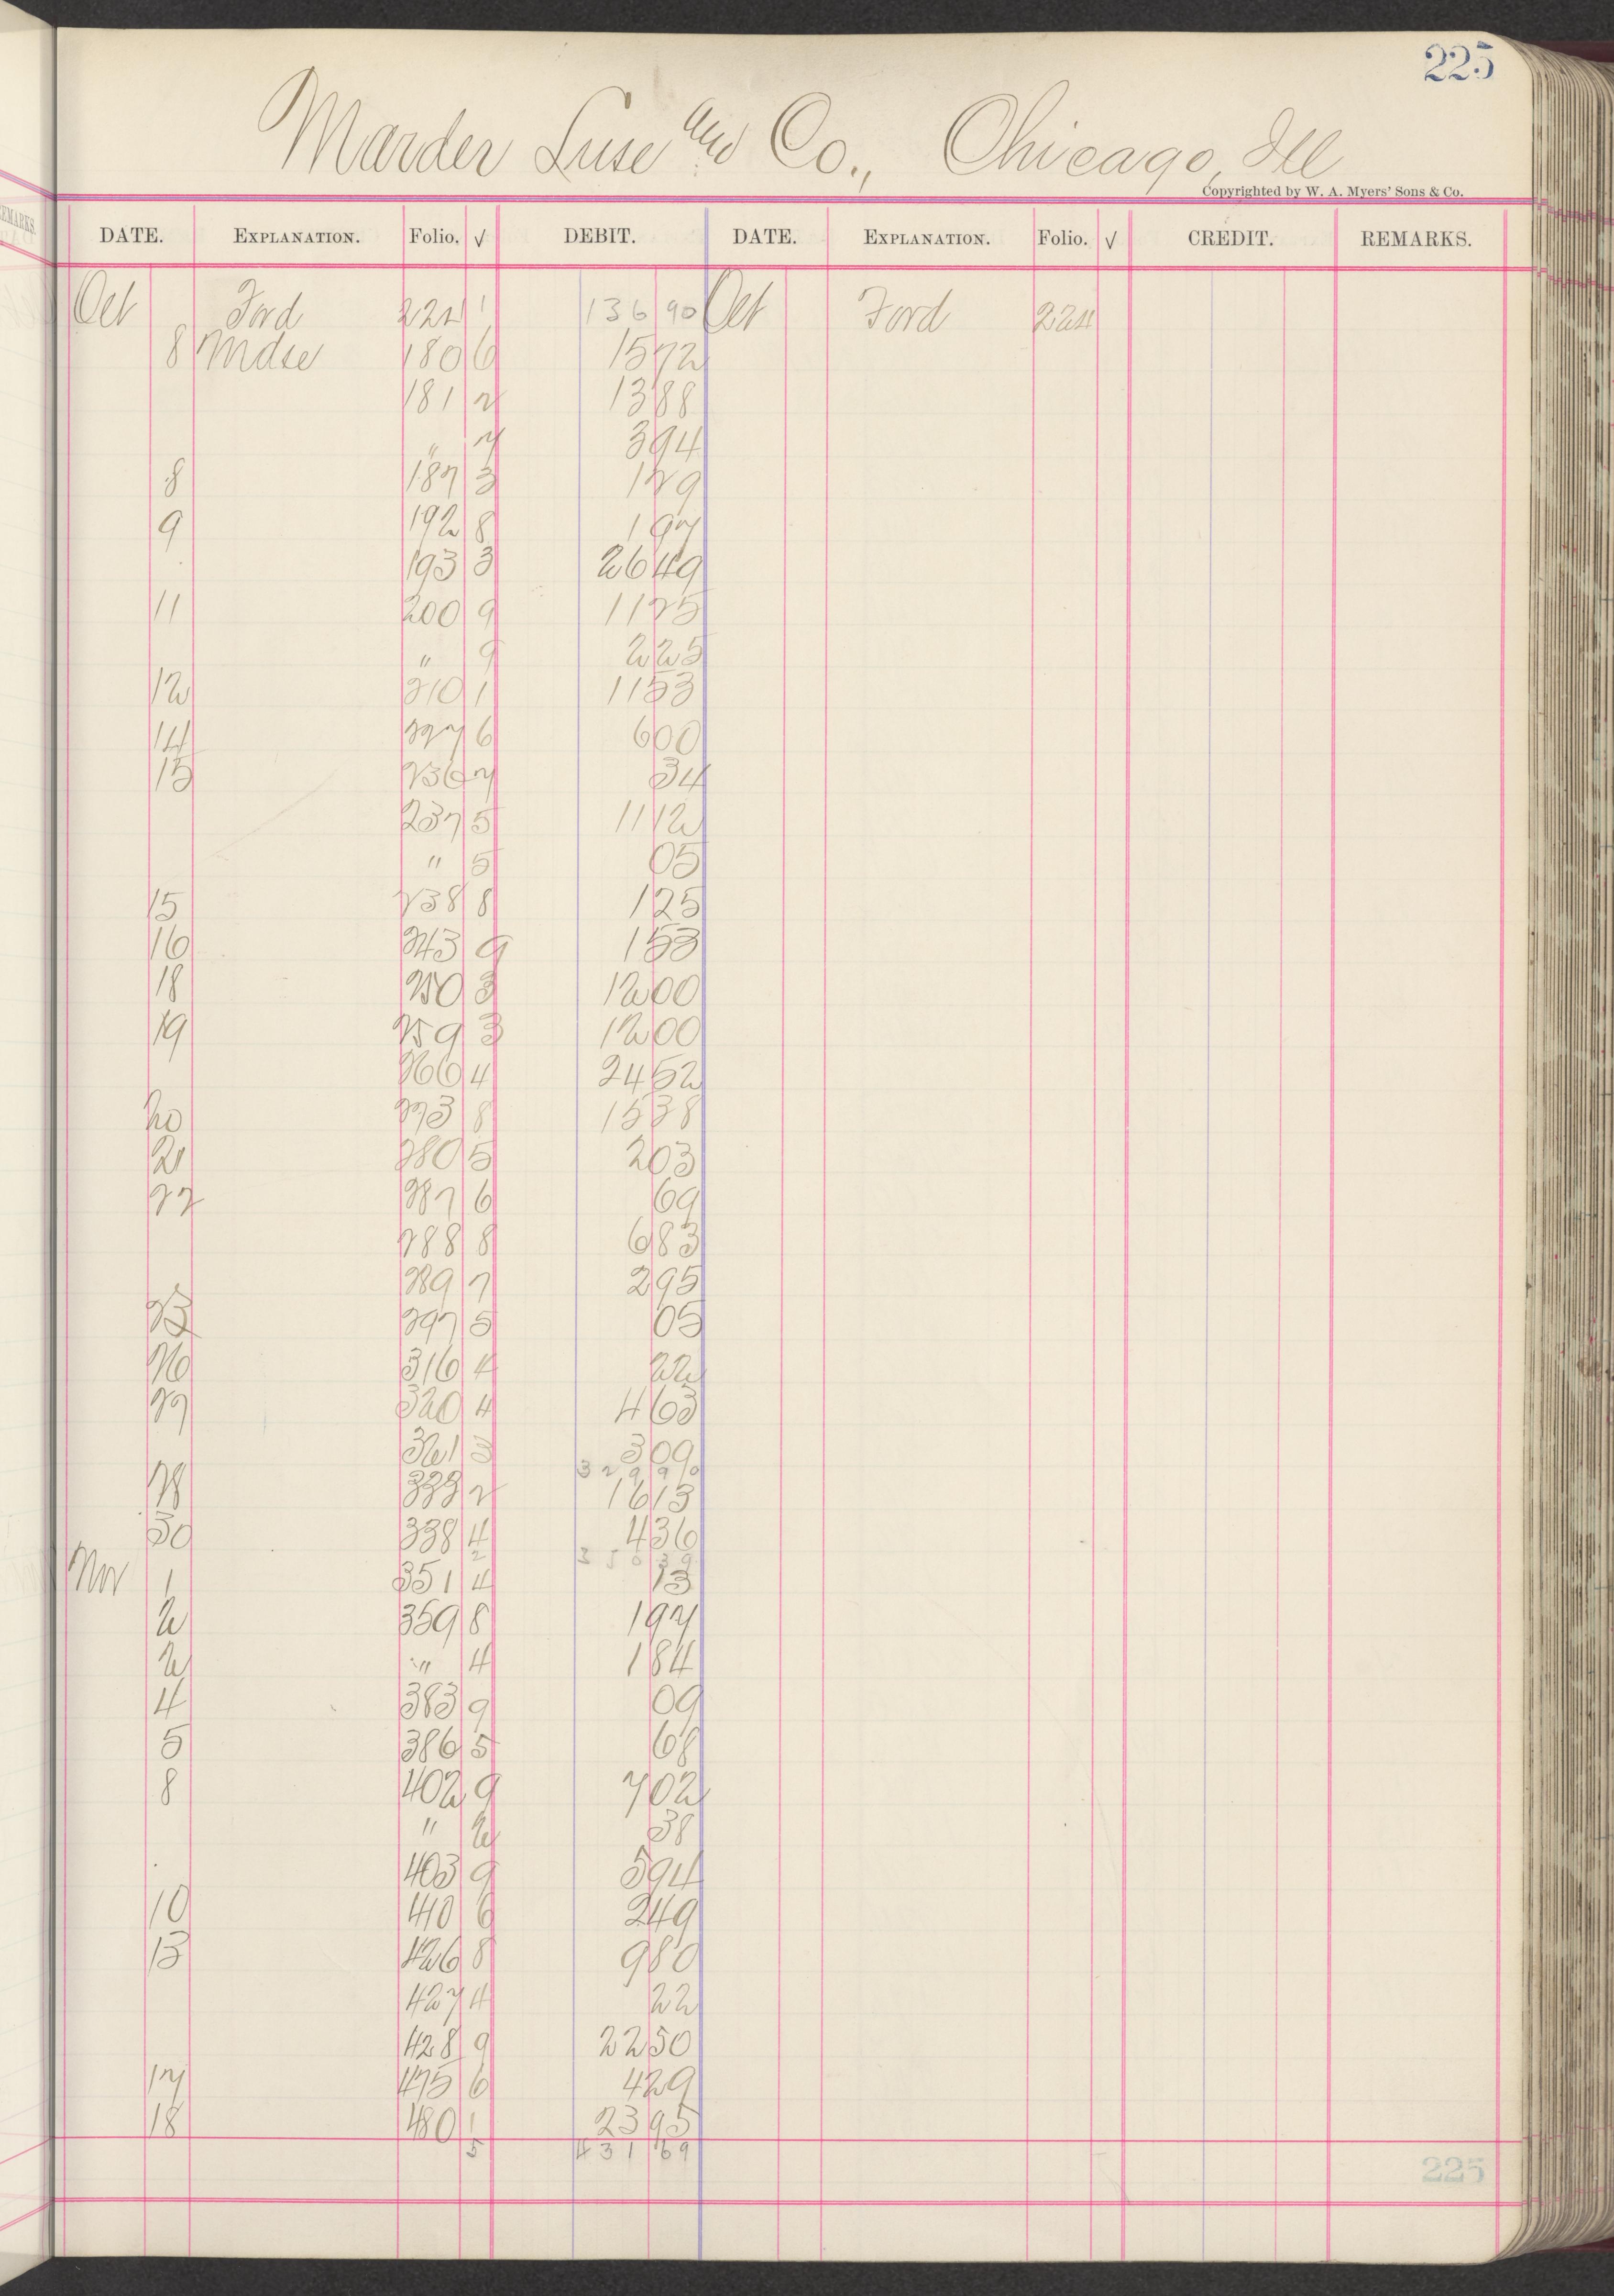 225
Marder Luse and Co., Chicago, Ill
Copyrighted by W. A. Myers' Sons & Co.
DATE. EXPLANATION. Folio. √ DEBIT. DATE. EXPLANATION. Folio. √ CREDIT. REMARKS.
Oct Ford 224 1 136 90 Oct Ford 224
8 Mdse 180 6 15 72
181 2 13 88
" 7 3 94
8 187 3 1 29
9 192 8 1 97
193 3 26 49
11 200 9 11 25
" 9 2 25
12 210 1 11 53
14 227 6 6 00
15 236 7 34
237 5 11 12
" 5 05
15 238 8 1 25
16 243 9 1 53
18 250 3 12 00
19 259 3 12 00
266 4 24 52
20 273 8 15 38
21 280 5 2 03
22 287 6 69
288 8 6 83
289 7 2 95
23 297 5 05
26 316 4 22
27 320 4 4 63
321 3 3 09
3 2 9 9 0
28 332 2 16 13
30 338 4 4 36
2 3 5 0 3 9
Nov 1 351 4 13
2 359 8 1 97
2 " 4 1 84
4 383 9 09
5 386 5 68
8 402 9 7 02
" 2 38
403 9 5 94
10 410 6 2 49
13 426 8 9 80
427 4 22
428 9 22 50
17 475 6 4 29
18 480 1 23 95
5 4 3 1 69
225